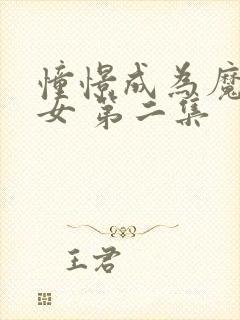 憧憬成為魔
女 第二集
王君